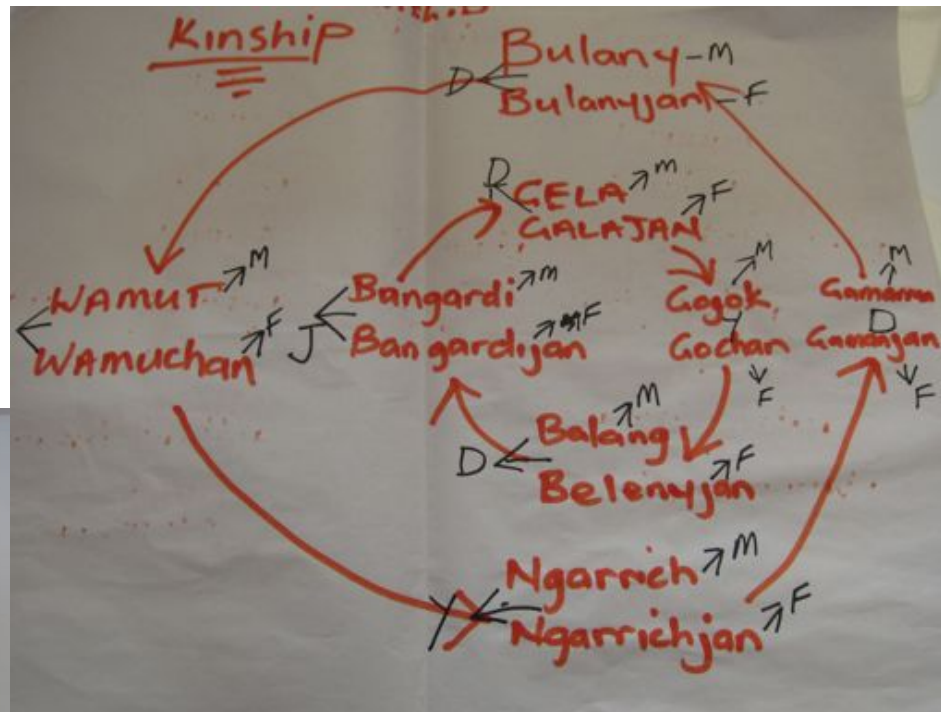 Kinship
Bulany - M
D
Bulanyjan - F
R
GELA M
GALAJAN F
WAMUT M
WAMUCHAN F
J
Bangardi M
Bangardijan F
M
Gogok
Y
Gochan
F
M
D
Gamanjan
F
Balang M
D
Belenyjan F
Ngarrich M
Y
Ngarrichjan F